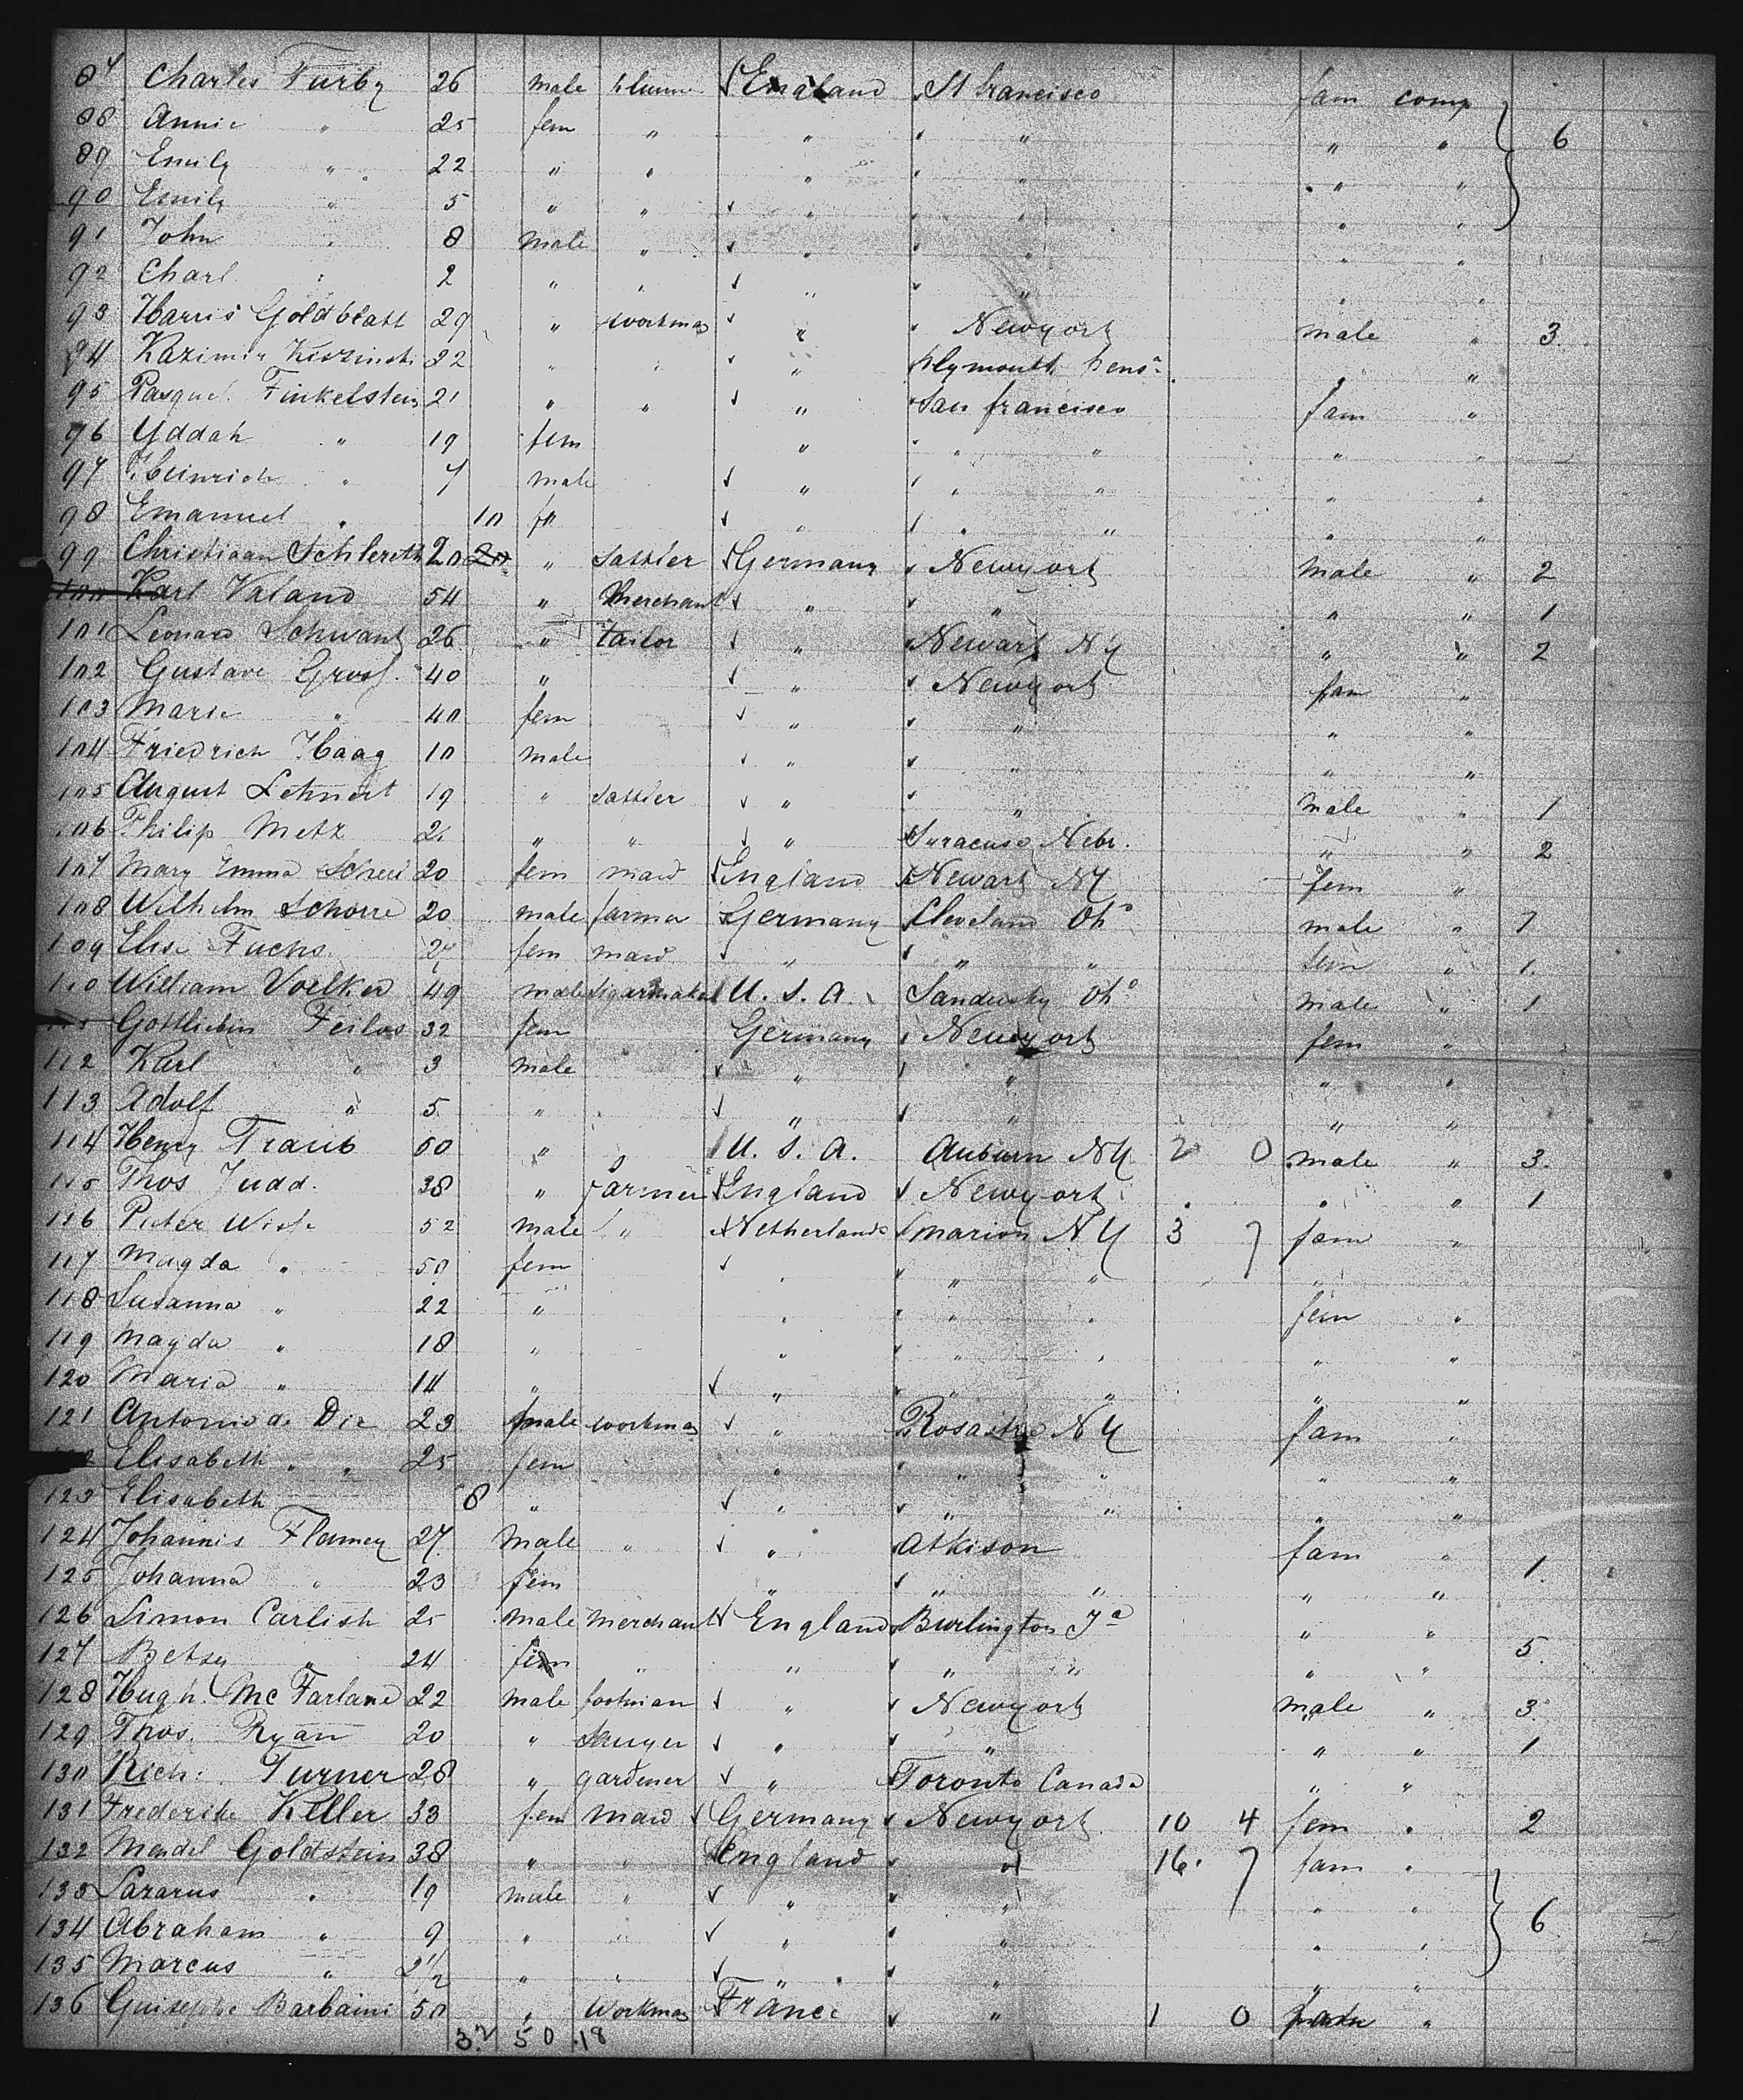 87 Charles Furby 26 male England St francisco fam comp
88 Annie " 25 fem " " " " " 6
89 Emily " 22 " " " " " " "
90 Emily " 5 " " " " " " "
91 John " 8 male " " " " " "
92 Charl " 2 " " " " " "
93 Harris Goldblatt 29 " workman " Newyork male " 3
94 Kazimir 22 " " " Plymouth Pensa " "
95 Pasque Finkelstein 21 " " " San francisco fam "
96 Yddah " 19 fem " " " " "
97 Heinrich " 7 male " " " " "
98 Emanuel " 10 " " " " "
99 Christiaan Schlereth 20 20 " Sattler Germany Newyork male " 2
100 Karl Valand 54 " Merchant " " " " 1
101 Leonard Schwantz 26 " tailor " Newark NY " " 2
102 Gustave Gross 40 " " Newyork fam "
103 Marie " 40 fem " " " "
104 Friedrich Haag 10 male " " " "
105 August Lehnert 19 " Sattler " " male " 1
106 Philip Metz 21 " " " Suracuse Nebr. " " 2
107 Mary Emma 20 fem maid England Newark NY fem "
108 Wilhelm Schorre 20 male farmer Germany Cleveland Oho male " 7
109 Elise Fuchs 27 fem maid " " " fem " 1.
110 William Voelker 49 male Sigarmaker U. S. A. Sandusky Oho male " 1
Gottliebin 32 fem Germany Newyork fem "
112 Karl " 3 male " " " "
113 Adolf " 5 " " " " "
114 Henry Traub 50 " U. S. A. Auburn NY 2 0 male " 3.
115 Thos Judd. 38 " Farmer England Newyork " " 1
116 Pieter 52 male " Netherlands Marion NY 3 7 fam "
117 Magda " 50 fem " " " "
118 Susanna " 22 " " " " fem "
119 Magda " 18 " " " " " "
120 Maria " 14 " " " " " "
121 Antonie de Die 23 male workman " NY fam "
Elisabeth " " 25 fem " " " " "
123 Elisabeth 8 " " " " " "
124 Johannis 27 male " " Atkison fam " 1.
125 Johanna " 23 fem " " " " "
126 Simon Carlish 25 male merchant England Burlington Ia " "
127 Betsy " 24 fem " " " " " " 5.
128 Hugh Mc Farland 22 male footman " Newyork male " 3
129 Thos. Ryan 20 " " " " " 1
130 Rich: Turner 28 " gardener " Toronto Canada " "
131 Frederike Keller 33 fem maid Germany Newyork 10 4 fem " 2
132 Mendel Goldstein 38 " " England " 16. 7 fam "
133 Lazarus " 19 male " " " " "
134 Abraham " 9 " " " " " " 6
135 Marcus " 2 1/2 " " " " " "
136 Guiseppe Barbaini 50 " Workman France " 1 0 "
32 50 18